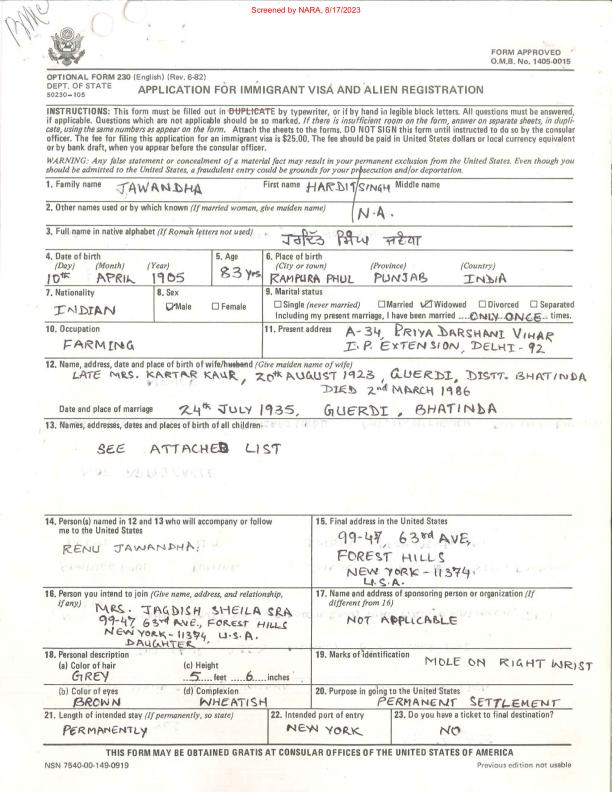 Screened by NARA, 8/17/2023
FORM APPROVED
O.M.B. No. 1405-0015
OPTIONAL FORM 230 (English) (Rev. 6-82)
DEPT. OF STATE
50230-105
APPLICATION FOR IMMIGRANT VISA AND ALIEN REGISTRATION
INSTRUCTIONS: This form must be filled out in DUPLICATE by typewriter, or if by hand in legible block letters. All questions must be answered,
if applicable. Questions which are not applicable should be so marked. If there is insufficient room on the form, answer on separate sheets, in dupli-
cate, using the same numbers as appear on the form. Attach the sheets to the forms. DO NOT SIGN this form until instructed to do so by the consular
officer. The fee for filing this application for an immigrant visa is $25.00. The fee should be paid in United States dollars or local currency equivalent
or by bank draft, when you appear before the consular officer.
WARNING: Any false statement or concealment of a material fact may result in your permanent exclusion from the United States. Even though you
should be admitted to the United States, a fraudulent entry could be grounds for your prosecution and/or deportation.
1. Family name JAWANDHA First name HARDIT SINGH Middle name
2. Other names used or by which known (If married woman, give maiden name) N.A.
3. Full name in native alphabet (If Roman letters not used) ਹਰਦਿਤ ਸਿੰਘ
4. Date of birth 5. Age 6. Place of birth
(Day) (Month) (Year) (City or town) (Province) (Country)
10th APRIL 1905 83 yrs. RAMPURA PHUL PUNJAB INDIA
7. Nationality 8. Sex 9. Marital status
INDIAN Male Female Single (never married) Married Widowed Divorced Separated
Including my present marriage, I have been married ....ONLY ONCE.. times.
10. Occupation 11. Present address A-34, PRIYA DARSHANI VIHAR
FARMING I.P. EXTENSION, DELHI-92
12. Name, address, date and place of birth of wife/husband (Give maiden name of wife)
LATE MRS. KARTAR KAUR, 20th AUGUST 1923, GUERDI, DISTT. BHATINDA
DIED 2nd MARCH 1986
Date and place of marriage 24th JULY 1935, GUERDI, BHATINDA
13. Names, addresses, dates and places of birth of all children
SEE ATTACHED LIST
14. Person(s) named in 12 and 13 who will accompany or follow
me to the United States
RENU JAWANDHA.
15. Final address in the United States
99-47, 63rd AVE,
FOREST HILLS
NEW YORK - 11374.
U.S.A.
16. Person you intend to join (Give name, address, and relationship,
if any) MRS. JAGDISH SHEILA SRA
99-47, 63rd AVE., FOREST HILLS
NEW YORK-11374, U.S.A.
DAUGHTER
17. Name and address of sponsoring person or organization (If
different from 16)
NOT APPLICABLE
18. Personal description
(a) Color of hair (c) Height
GREY 5 feet 6 inches
(b) Color of eyes (d) Complexion
BROWN WHEATISH
19. Marks of identification
MOLE ON RIGHT WRIST
20. Purpose in going to the United States
PERMANENT SETTLEMENT
21. Length of intended stay (If permanently, so state) 22. Intended port of entry 23. Do you have a ticket to final destination?
PERMANENTLY NEW YORK NO
THIS FORM MAY BE OBTAINED GRATIS AT CONSULAR OFFICES OF THE UNITED STATES OF AMERICA
NSN 7540-00-149-0919 Previous edition not usable